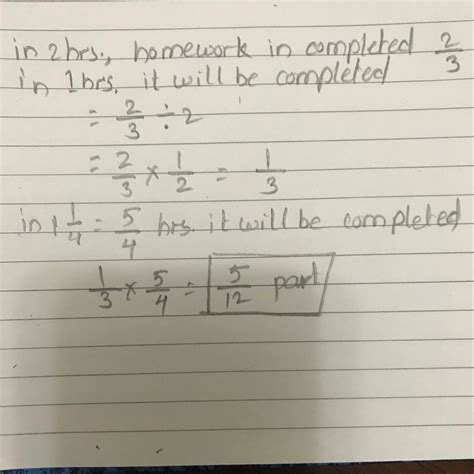 in 2hrs., homework in completed 2/3
in 1hrs. it will be completed
= 2/3 ÷ 2
= 2/3 × 1/2 = 1/3
in 1 1/4 = 5/4 hrs. it will be completed
1/3 × 5/4 = 5/12 part